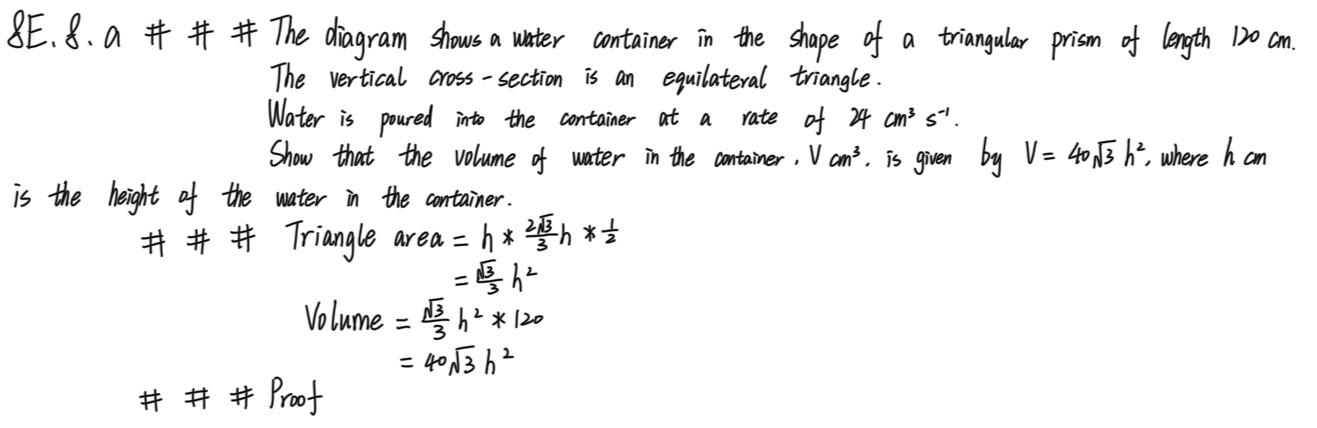 8E. 8. a # # # The diagram shows a water container in the shape of a triangular prism of length 120 cm.
The vertical cross-section is an equilateral triangle.
Water is poured into the container at a rate of 24 cm³ s⁻¹.
Show that the volume of water in the container, V cm³, is given by V = 40√3 h², where h cm
is the height of the water in the container.
# # # Triangle area = h * 2√3/3 h * 1/2
= √3/3 h²
Volume = √3/3 h² * 120
= 40√3 h²
# # # Proof